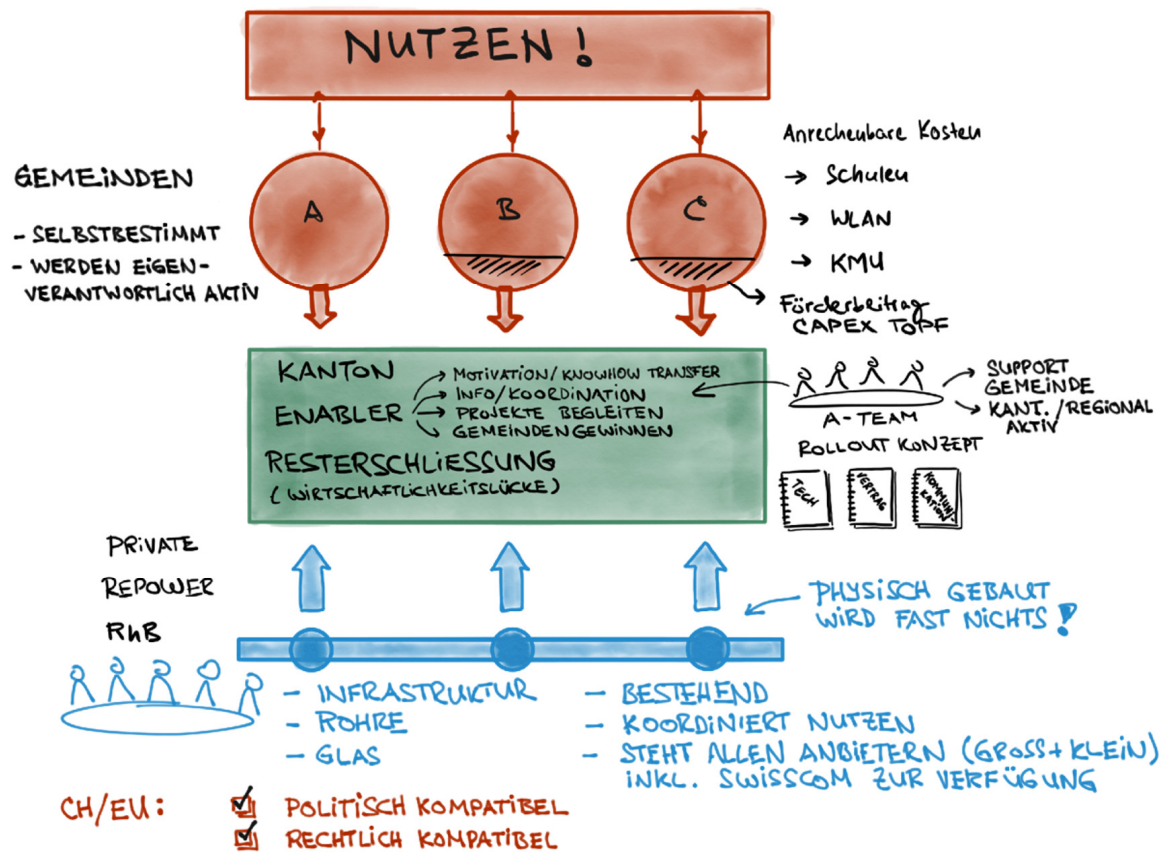 NUTZEN!
GEMEINDEN
- SELBSTBESTIMMT
- WERDEN EIGEN-
VERANTWORTLICH AKTIV
A
B
C
Anrechenbare Kosten
→ Schulen
→ WLAN
→ KMU
Förderbeitrag
CAPEX TOPF
KANTON
ENABLER
→ MOTIVATION/KNOWHOW TRANSFER
→ INFO/KOORDINATION
→ PROJEKTE BEGLEITEN
→ GEMEINDEN GEWINNEN
RESTERSCHLIESSUNG
(WIRTSCHAFTLICHKEITSLÜCKE)
A-TEAM
→ SUPPORT
GEMEINDE
→ KANT./REGIONAL
AKTIV
ROLLOUT KONZEPT
TECH
VERTRAG
KOMMUNI-
KATION
PRIVATE
REPOWER
RhB
PHYSISCH GEBAUT
WIRD FAST NICHTS!
- INFRASTRUKTUR
- ROHRE
- GLAS
- BESTEHEND
- KOORDINIERT NUTZEN
- STEHT ALLEN ANBIETERN (GROSS+KLEIN)
INKL. SWISSCOM ZUR VERFÜGUNG
CH/EU:
POLITISCH KOMPATIBEL
RECHTLICH KOMPATIBEL